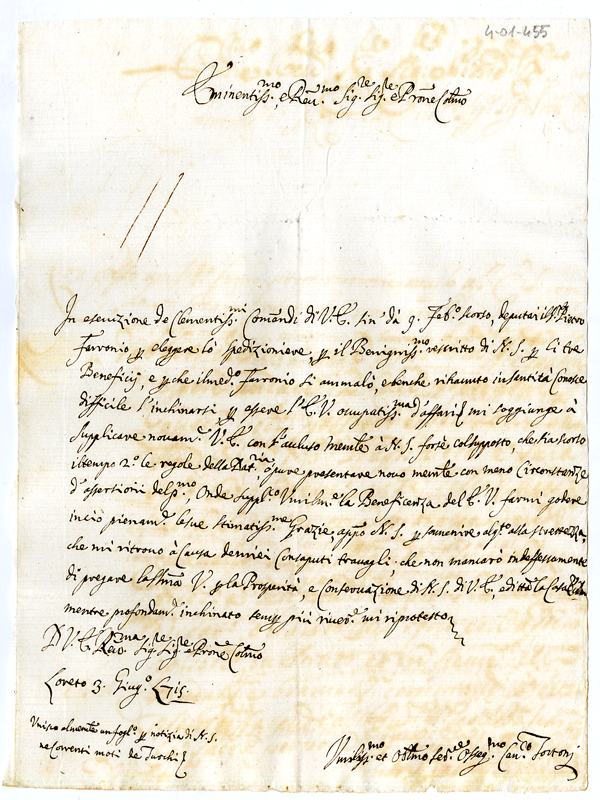 4-01-455
Eminentiss.mo, e Reu.mo Sig.re Sig.re e Prone Colmo
In esecuzione de Clementiss.mi Comandi di V. E. sin' dà 9. Feb.o scorso, deputai il S. Pietro
Farronio p eleggere lò spedizioniere, p il Benigniss.mo rescritto di N. S. p li tre
Beneficij, e p che il med.o Farronio si ammalò, e benche rihauuto in sanità Conosce
difficile l'inchinarsi p essere l'E. V. occupatiss.ma d'affari mi soggiunge à
supplicare nouam.e V. E. con l'acluso mente à N. S. forse col supposto, che sia scorso
il tempo 2.o le regole della Dat.ria ò pure presentare nouo mente con meno Circonstanze
d'assertioni del p.mo, Onde suppl.co Vmilm.e la Beneficenza del E. V. farmi godere
in ciò pienam.e le sue stimatiss.me Grazie appo N. S. p souenire alq.to alla strettezza,
che mi ritrouo à Causa de miei Consaputi trauagli, che non mancarò indefessamente
di pregare la V. p la Prosperità, e Conseruazione di N. S. di V. E., e di tta la Casa
mentre profondam.e inchinato semp più riuer.e mi riprotesto
D V. E. Reu.ma Sig.re Sig.re e Prone Colmo
Loreto 3. Giug.o 1715.
Vnisco almente un fogl.o p notizia di N. S.
ne Correnti moti de Turchi
Vmiliss.mo et Obl.mo Se.re Osseq.mo Can.co Tortonj